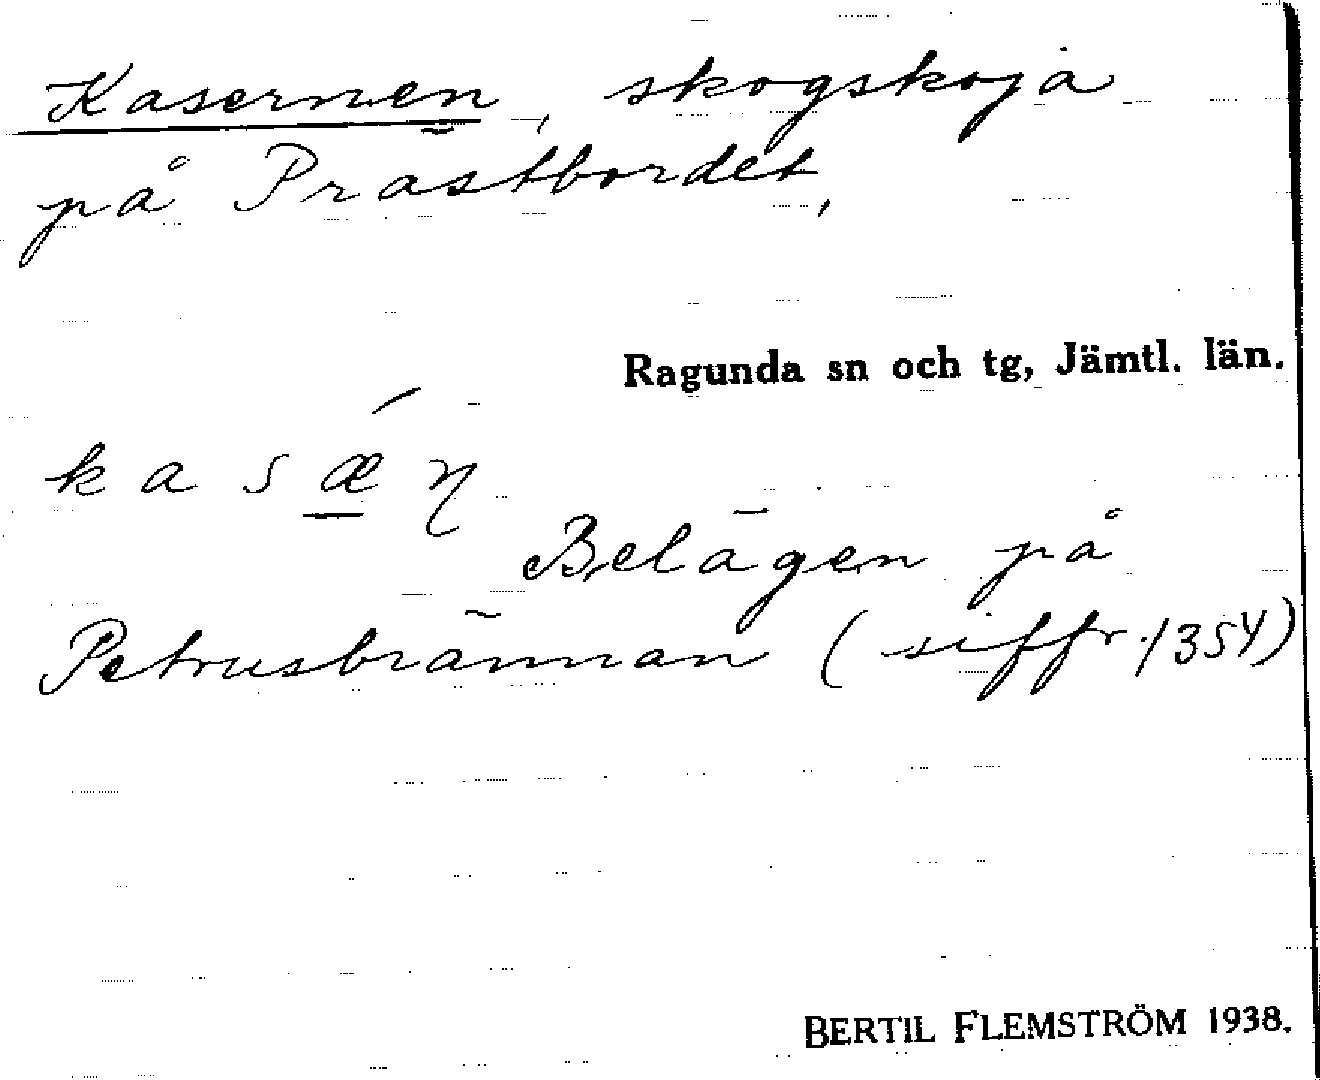 Kasernen, skogskoja
på Prästbordet,
Ragunda sn och tg, Jämtl. län.
k a s ǽ n̥
Belägen på
Petrusbrännan (siffr. 1354)
BERTIL FLEMSTRÖM 1938.